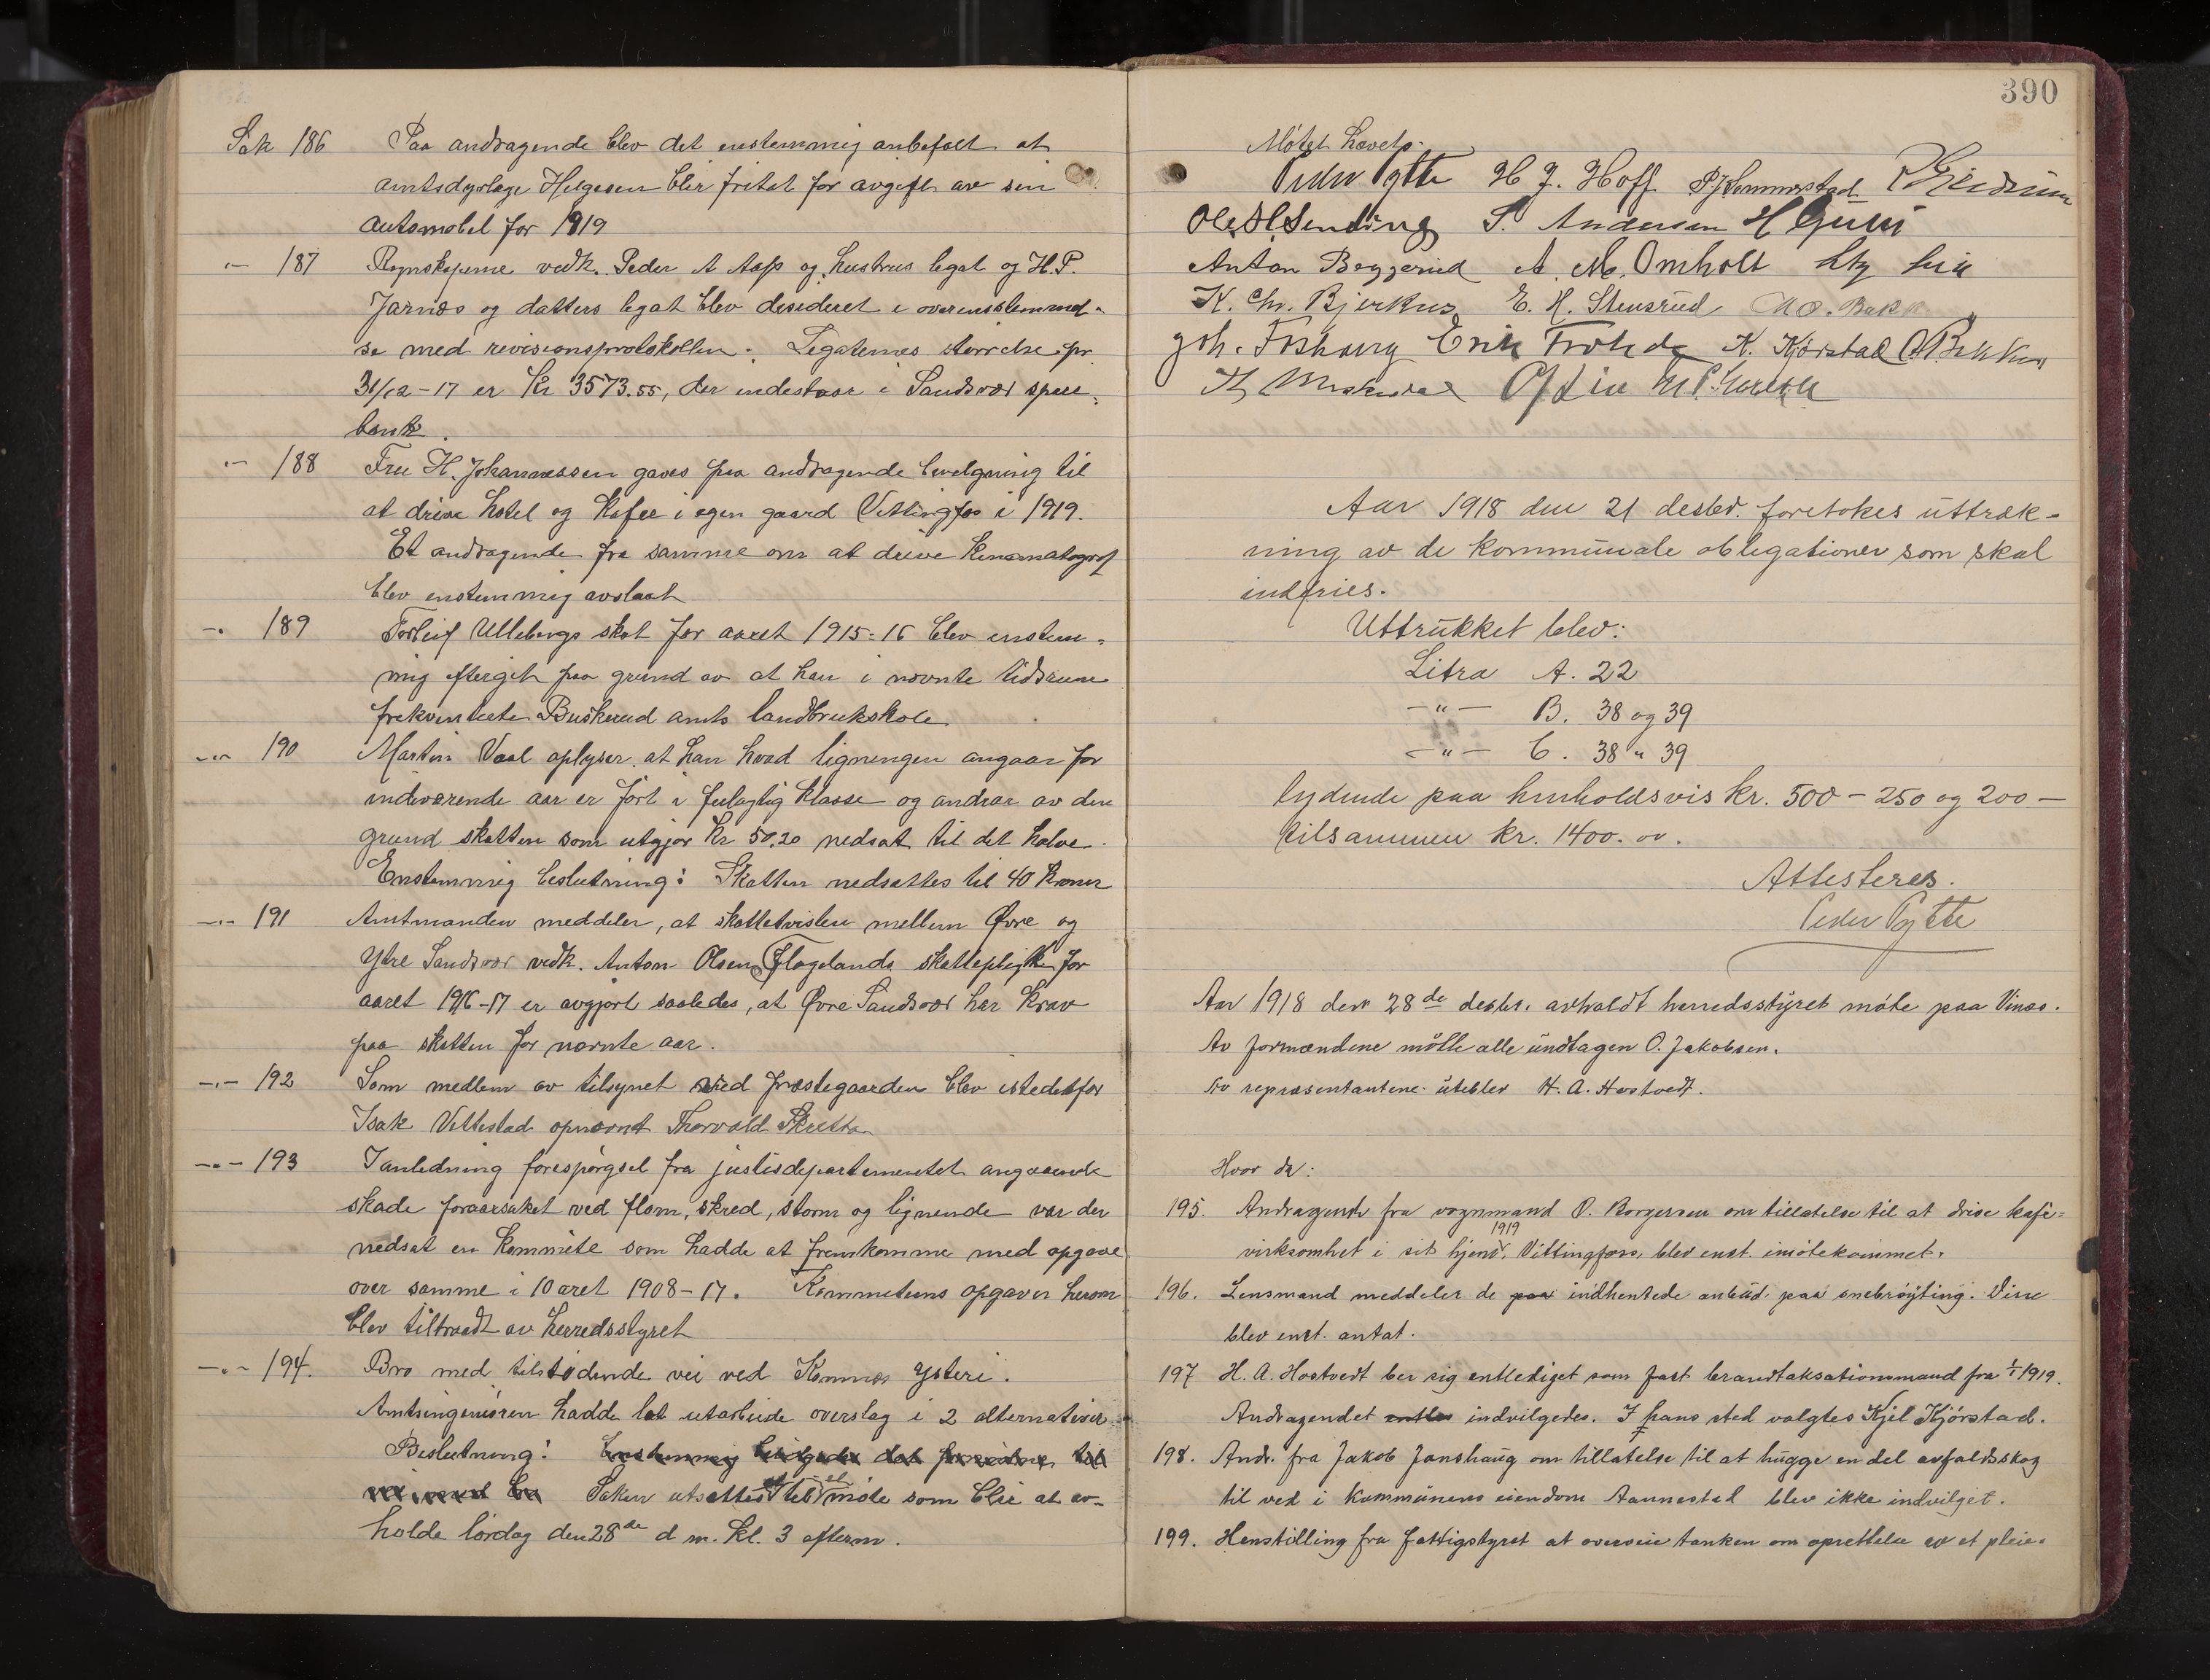 Sak 186 Paa andragende blev det enstemmig anbefalt at
amtsdyrlæge Helgesen blir fritat for avgift av sin
automobil for 1919
-"- 187 Regnskaperne vedk. Peder A Aas og hustrus legat og H.P.
Jarnæs og datters legat blev desideret i overensstemmel-
se med revisionsprotokollen. Legaternes størrelse pr
31/12-17 er Kr 3573.55, der indestaar i Sandsvær spare-
bank.
-"- 188 Fru H. Johannessen gaves paa andragende bevilgning til
at drive hotel og kafee i egen gaard Vittingfos i 1919.
Et andragende fra samme om at drive kinematograf
blev enstemmig avslaat
-"- 189 Torleif Ullebergs skat for aaret 1915-16 blev enstem-
mig eftergit paa grund av at han i nævnte tidsrum
frekventerte Buskerud amts landbrukskole.
-"- 190 Martin Vaal oplyser at han hvad ligningen angaar for
indeværende aar er ført i feilagtig klasse og andrar av den
grund skatten som utgjør Kr 50.20 nedsat til det halve.
Enstemmig beslutning: Skatten nedsættes til 40 kroner
-"- 191 Amtmanden meddeler, at skattetvisten mellem Øvre og
Ytre Sandsvær vedk. Anton Olsen Flagelands skatteplikt for
aaret 1916-17 er avgjort saaledes, at Øvre Sandsvær har krav
paa skatten for nævnte aar.
-"- 192 Som medlem av tilsynet med præstegaarden blev istedetfor
Isak Vittestad opnævnt Thorvald Skutta
-"- 193 I anledning forespørgsel fra justisdepartementet angaaende
skade foraarsaket ved flom, skred, storm og lignende var der
nedsat en kommite som hadde at fremkomme med opgave
over samme i 10 aret 1908-17. Kommiteens opgaver herom
blev tiltraadt av herredsstyret
-"- 194. Bro med tilstødende vei ved Komnæs ysteri.
Amtsingeniøren hadde lat utarbeide overslag i 2 alternativer.
Beslutning: Enstemmig
Saken utsættes til et møte som blir at av-
holde lørdag den 28de d m. kl. 3 efterm.
390
Møtet hævet.
Peder Pytte H J. Hoff
Ole H Sending S. Andersen
Anton Beggerud A. M. Omholt
K. Chr. Bjerknes E. H. Stensrud
Joh. Fosholm Erik K. Kjørstad

Aar 1918 den 21 desbr. foretokes uttræk-
ning av de kommunale obligationer som skal
indfries.
Uttrukket blev:
Litra A. 22
-"- B. 38 og 39
-"- C. 38 " 39
lydende paa henholdsvis kr. 500 - 250 og 200 -
tilsammen kr. 1400.00.
Attesteres.
Peder Pytte
Aar 1918 den 28de desbr. avholdt herredsstyret møte paa Vinæs.
Av formændene møtte alle undtagen O. Jakobsen.
Av repræsentantene uteblev H. A. Hostvedt.
Hvor da:
195. Andragende fra vognmand O. Borgersen om tillatelse til at drive kafe-
1919
virksomhet i sit hjem, Vittingfoss, blev enst. imøtekommet.
196. Lensmand meddeler de paa indhentede anbud paa snebrøyting. Disse
blev enst. antat.
197 H. A. Hostvedt ber sig entlediget som fast brandtaksationsmand fra 1/1 1919.
Andragendet entles indvilgedes. I hans sted valgtes Kjel Kjørstad.
198. Andr. fra Jakob Janshaug om tillatelse til at hugge en del avfaldsskog
til ved i kommunens eiendom Aannestad blev ikke indvilget.
199. Henstilling fra fattigstyret at overveie tanken om oprettelse av et pleie-